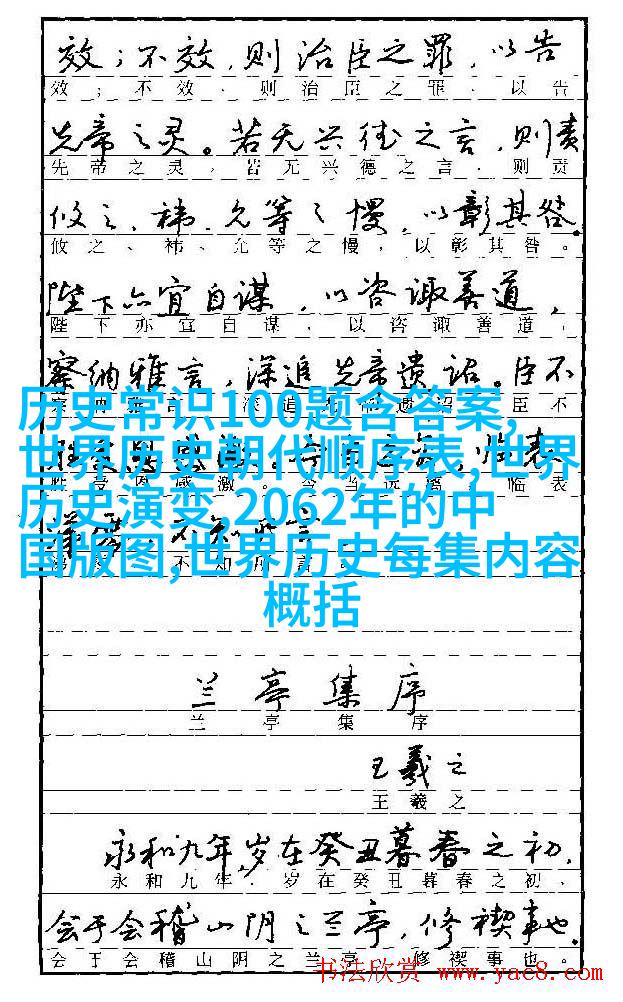 效；不效，则治臣之罪，以告
效；不效、则治臣之罪、以告
先帝之灵。若无兴德之言，则责
先帝之灵。若无兴德之言、则责
攸之、祎、允等之慢，以彰其咎。
攸之、祎、允等之慢，以彰其咎。
陛下亦宜自谋，以咨诹善道，
陛下亦宜自谋、以咨诹善道，
察纳雅言，深追先帝遗诏。臣不
历史常识100题含答案,
世界历史朝代顺序表,世界
历史演变,2062年的中
国版图,世界历史每集内容
概括
兰亭集序
兰亭集序
王羲之
王羲之
永和九年,岁在癸丑暮春之初,
永和九年．岁在癸丑暮春之初、
会于会稽山阴之兰亭，修禊事也。
会于会稽山阴之兰亭 修禊事也。
书法欣赏 www.yac8.com